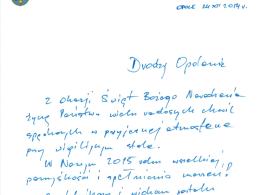 OPOLE 24 XII 2014 r.
Drodzy Opolanie
Z okazji Świąt Bożego Narodzenia
życzę Państwu wielu radosnych chwil
spędzonych w przyjaznej atmosferze
przy wigilijnym stole.
W Nowym 2015 roku wszelkiej
pomyślności i spełnienia marzeń.